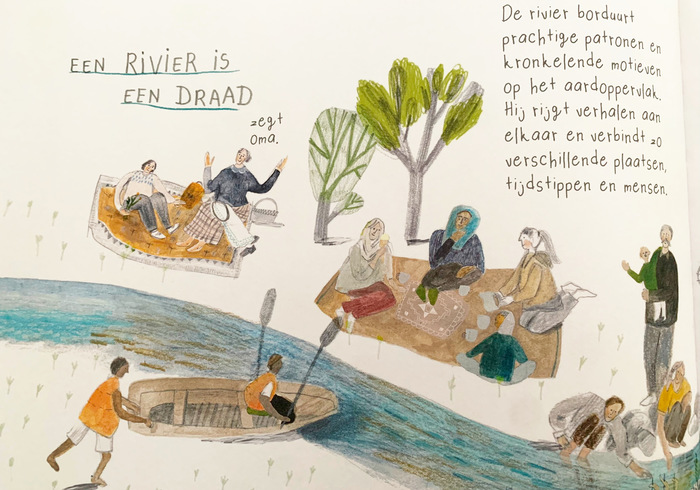 EEN RIVIER IS
EEN DRAAD
zegt
Oma.
De rivier borduurt
prachtige patronen en
kronkelende motieven
op het aardoppervlak.
Hij rijgt verhalen aan
elkaar en verbindt zo
verschillende plaatsen,
tijdstippen en mensen.